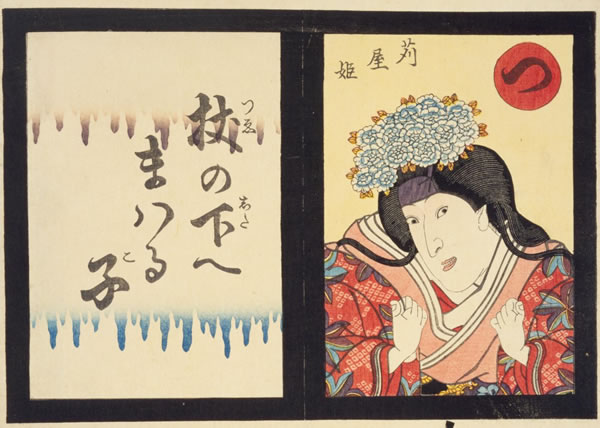 つ
苅屋姫
つゑ した
杖の下へ
まハる
こ
子